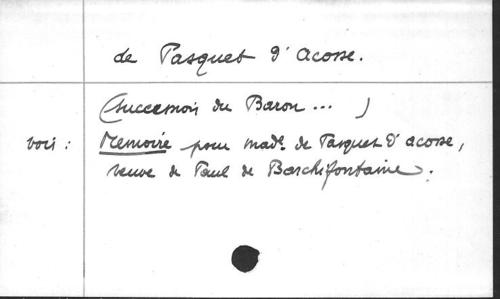 de Pasquet d'Acosse.
(succession du Baron ... )
voir : Memoire pour made. de Pasquet d'acosse,
veuve de Paul de Barchifontaine.